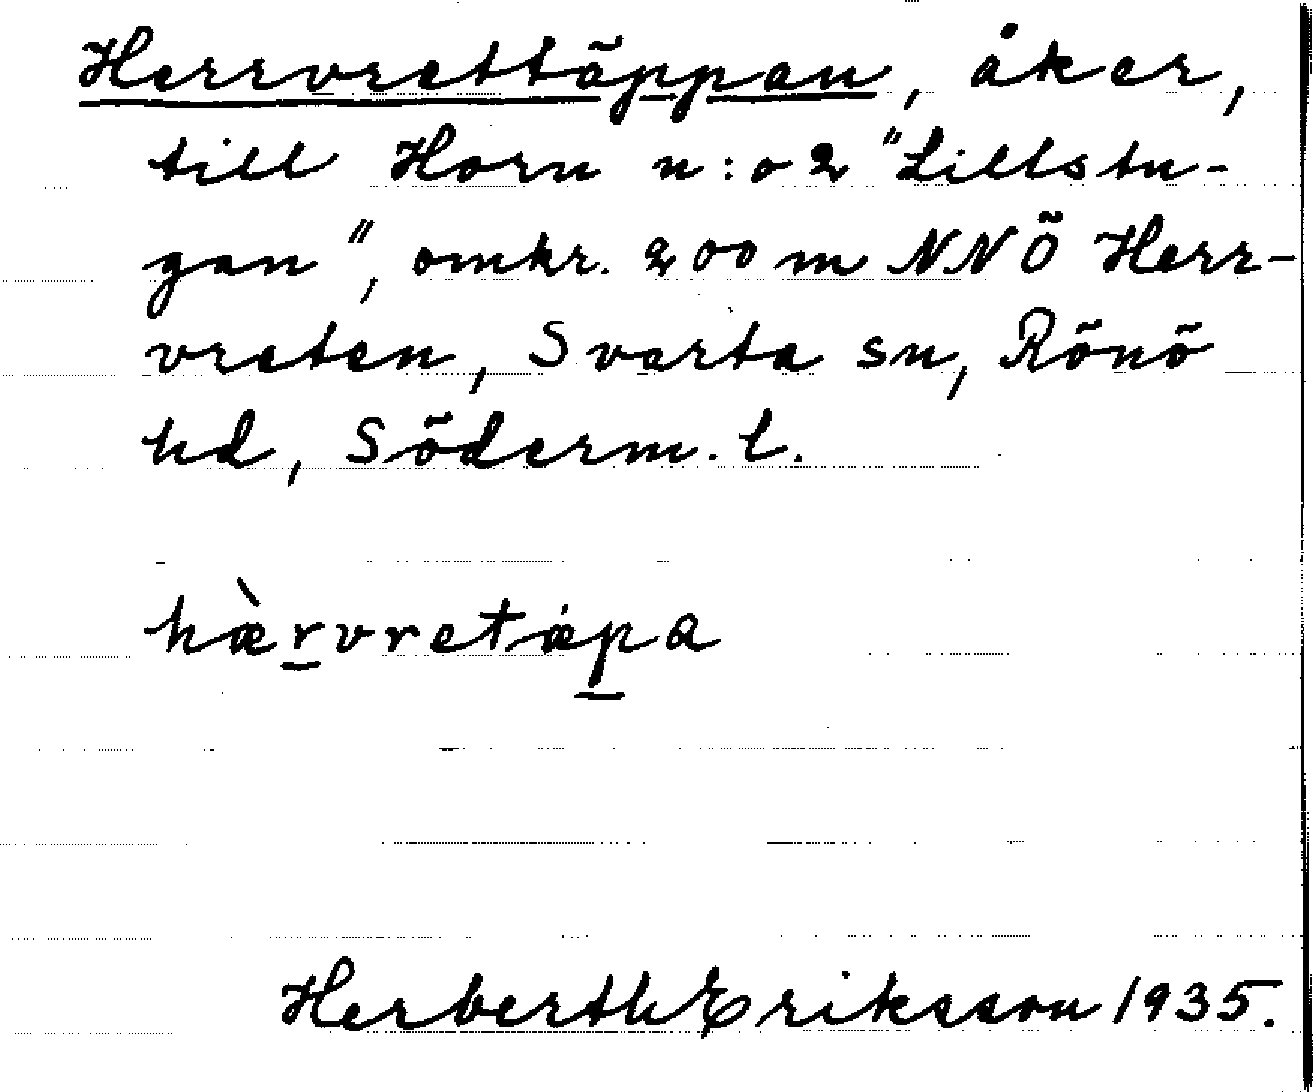 Herrvrettäppan, åker,
till Horn n:o 2 "Lillstu-
gan", omkr. 200 m NNÖ Herr-
vreten, Svarta sn, Rönö
hd, Söderm. l.
hæ̀r̲vretæ̇p̲a
Herberth Eriksson 1935.